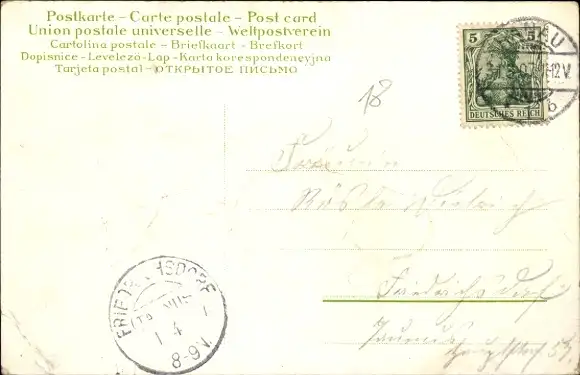 Postkarte – Carte postale – Post card
Union postale universelle – Weltpostverein
Cartolina postale – Briefkaart – Brefkort
Dopisnice – Levelező-Lap – Karta korespondencyjna
Tarjeta postal – ОТКРЫТОЕ ПИСЬМО
5 5
DEUTSCHES REICH
AU
-12 V.
b
18
Fräulein
Friedrichsdorf
Taunus
Hauptstr. 54.
1 4
8-9 V.